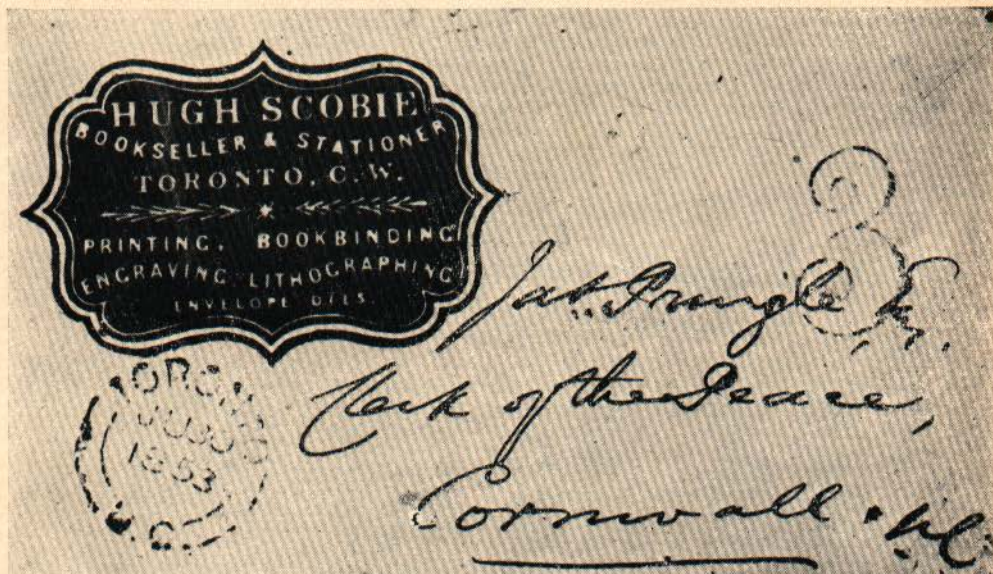 HUGH SCOBIE
BOOKSELLER & STATIONER
TORONTO, C.W.
PRINTING, BOOKBINDING
ENGRAVING LITHOGRAPHING
ENVELOPE DIES
3
Jas. Pringle, Esq.
Clerk of the Peace,
Cornwall
TORONTO
1853
U.C.